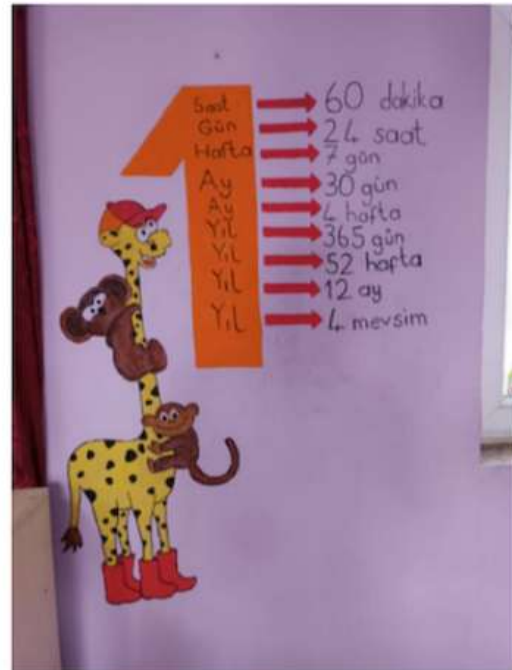 1
Saat 60 dakika
Gün 24 saat
Hafta 7 gün
Ay 30 gün
Ay 4 hafta
Yıl 365 gün
Yıl 52 hafta
Yıl 12 ay
Yıl 4 mevsim